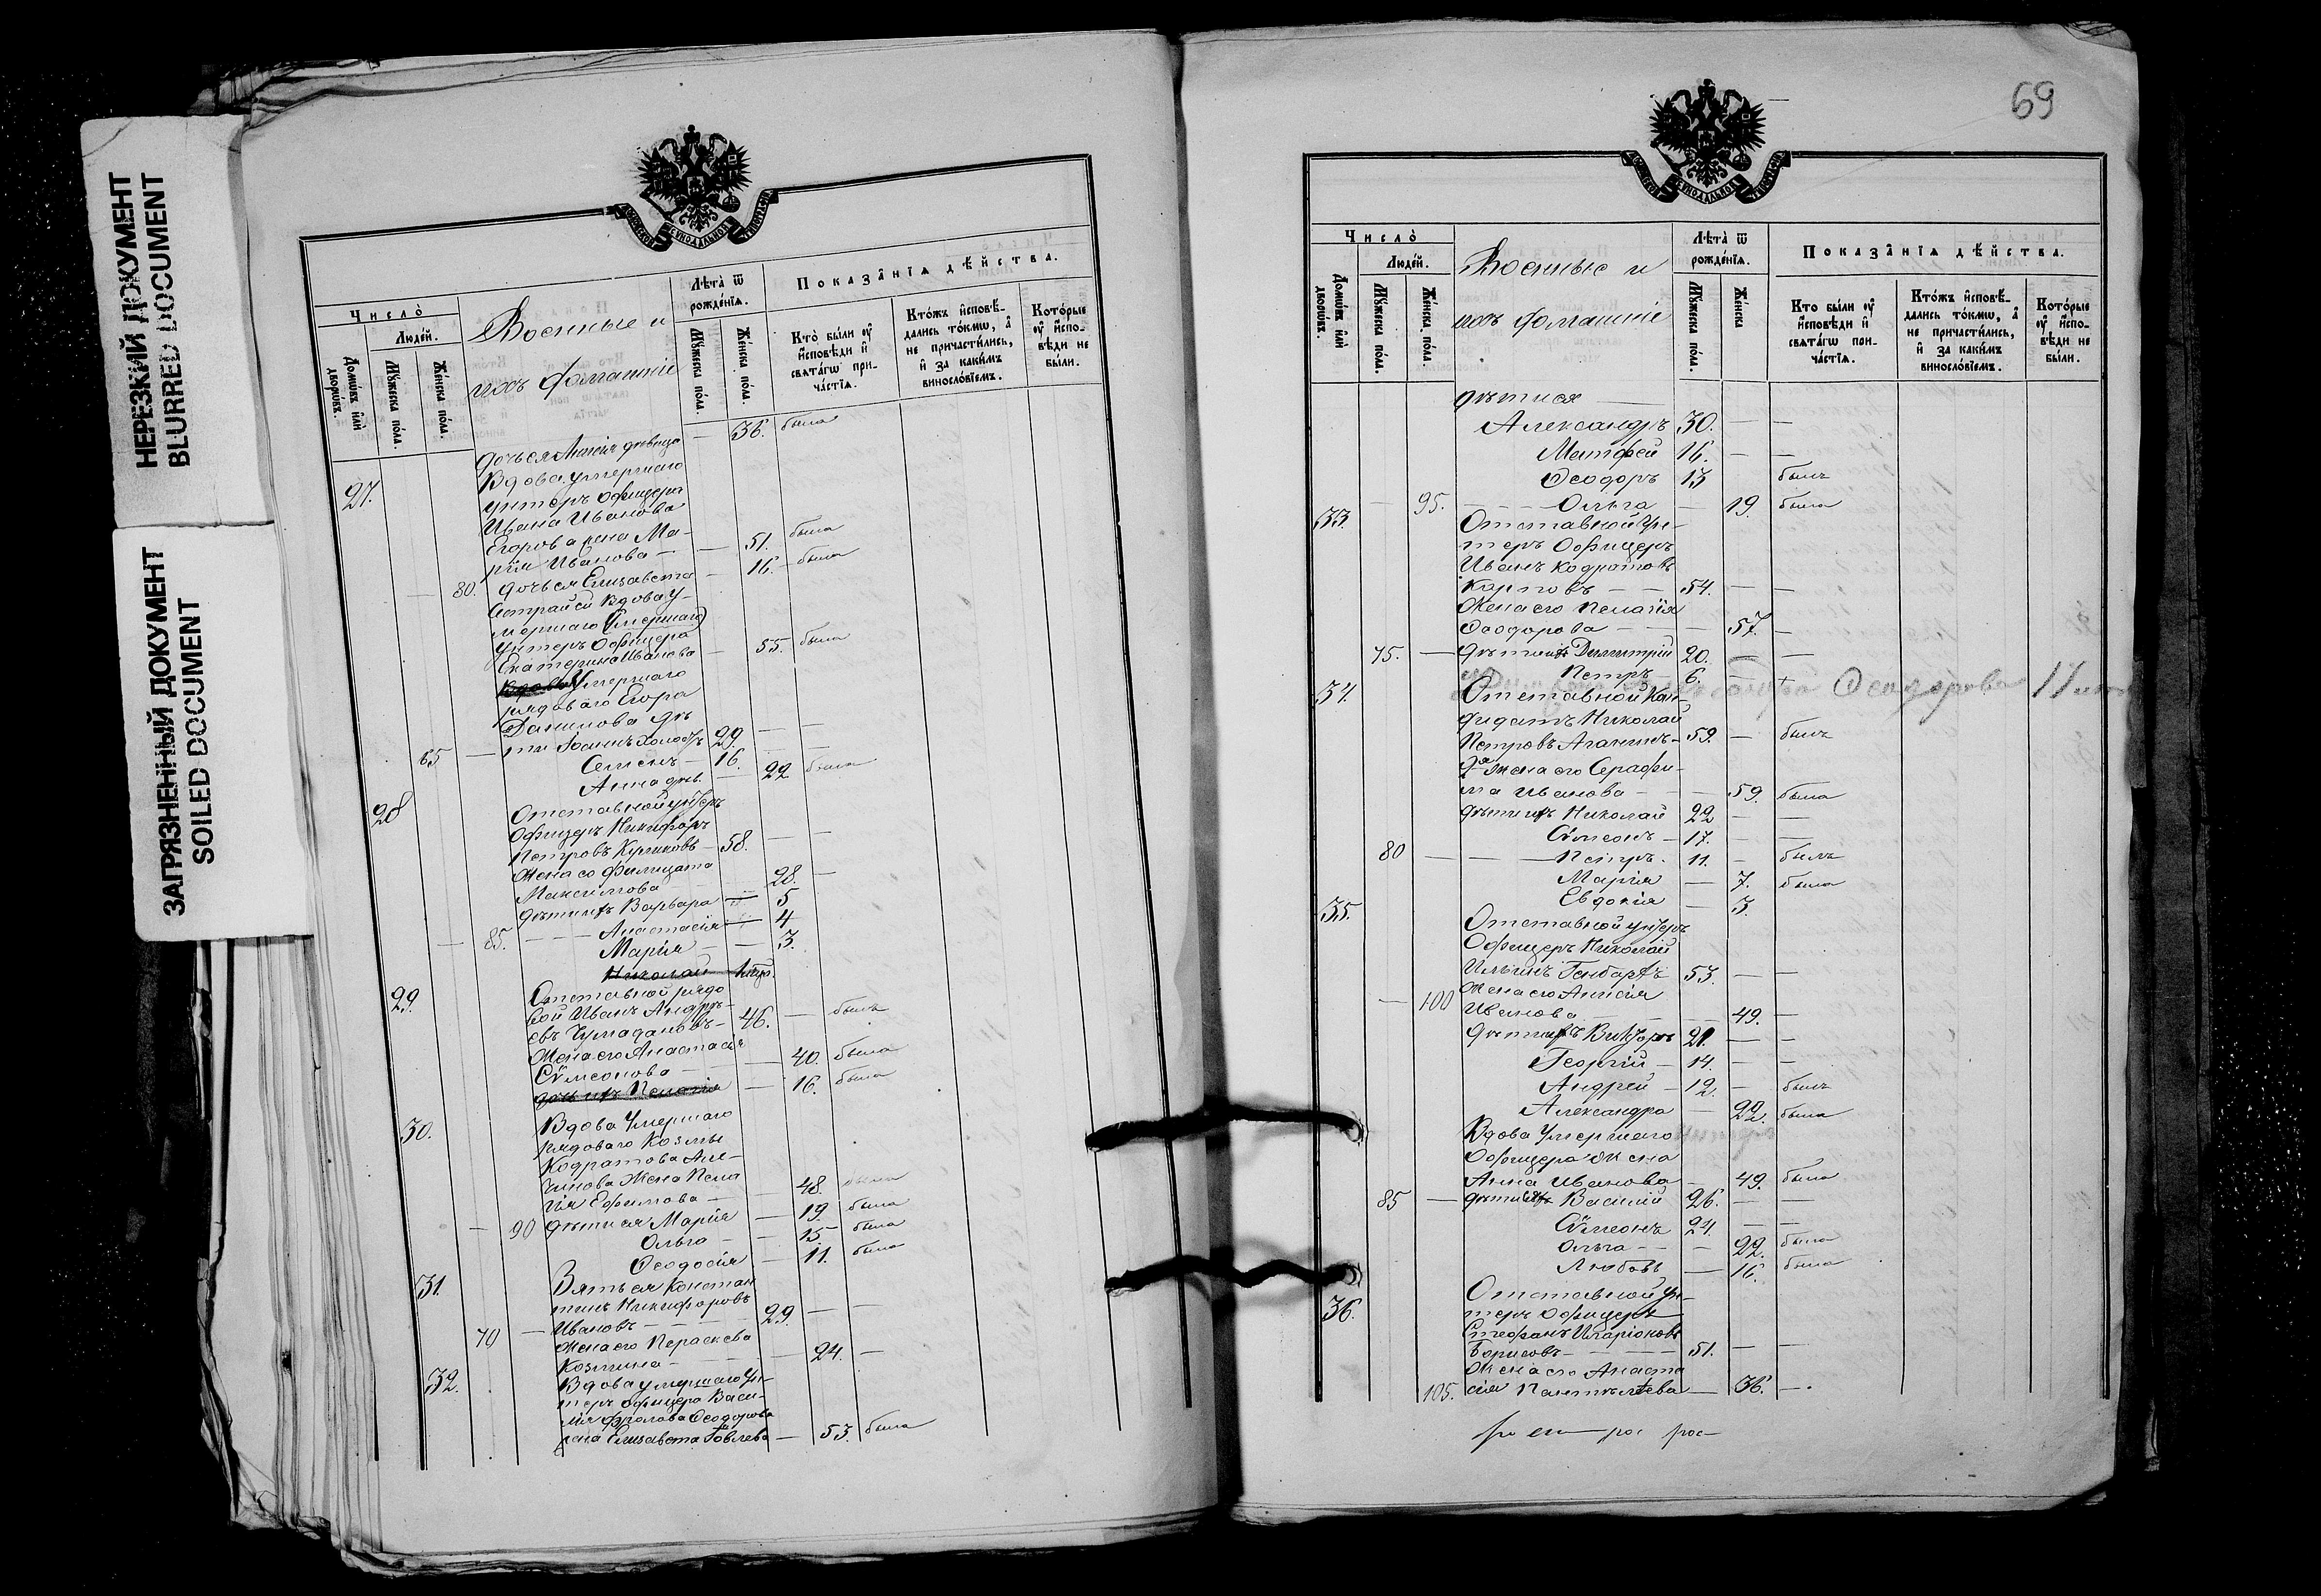 НЕРЕЗКИЙ ДОКУМЕНТ
BLURRED DOCUMENT
ЗАГРЯЗНЕННЫЙ ДОКУМЕНТ
SOILED DOCUMENT
Число̀
Людей.
Домѡвъ или дворѡвъ.
Мꙋжеска пола.
Женска пола.
Военные и
ихъ домашніе
Лѣта ѿ рожденїѧ.
Мꙋжеска пола.
Женска пола.
Показанїѧ дѣйства.
Кто были оу҆ исповѣди и свѧтагѡ причастїѧ.
Ктожъ исповѣдались токмѡ, а не причастились, и за какимъ винословїемъ.
Которые оу҆ исповѣди не были.
дочь ея дѣвица — 36. была
27. Вдова умершаго
унтеръ офицера
Ивана Иванова
Егорова жена Ма-
рія Иванова — 51. была
80. дочь ея Елисавета — 16. была
Сестра ей вдова у-
мершаго (умершаго)
Унтеръ Офицера
Екатерина Иванова — 55. была
Вдова Умершаго
рядоваго Егора
Данилова дѣ
65 — ти Іоаннъ 29. —
Семенъ — 16. —
Анна дѣв. — 22 была
28 Отставной унтеръ
Офицеръ Никифоръ
Петровъ Куликовъ — 58. —
Жена его Филицата
Максимова — 28. —
дѣти ихъ Варвара — 5
— 85. — Анастасія — 4
Марія — 3.
Николай
29. Отставной рядо
вой Иванъ Андре-
евъ Чумадановъ — 46. — былъ
Жена его Анастасія
Сѵмеонова — 40. была
дочь ихъ Пелагія — 16. была
30. Вдова Умершаго
рядоваго Козмы
Кодратова Але-
Жена Пела
гія Ефимова — 48. была
— 90 дѣти ея Марія — 19. была
Ольга — 15 была
Ѳеодосія — 11. была
31. Зять ея Констан
тинъ Никифоровъ
70 — Ивановъ — 29. —
Жена его Параскева
Козмина — 24. —
32. Вдова умершаго Ун-
теръ офицера Васи-
лія Фролова Ѳеодорова
жена Елисавета — 53. была
69
Число̀
Людей.
Домѡвъ или дворѡвъ.
Мꙋжеска пола.
Женска пола.
Военные и
ихъ домашніе
Лѣта ѿ рожденїѧ.
Мꙋжеска пола.
Женска
Показанїѧ дѣйства.
Кто были оу҆ исповѣди и свѧтагѡ причастїѧ.
Ктожъ исповѣдались токмѡ, а не причастились, и за какимъ винословїемъ.
Которые оу҆ исповѣди не были.
дѣти ея —
Александръ 30. — —
Матфей 16. — —
Ѳеодоръ 13 былъ
— 95. — Ольга — 19. была
33. Отставной Ун-
теръ Офицеръ
Иванъ Кодратовъ
Карповъ — 54. — —
Жена его Пелагія
Ѳеодорова — 57. —
75. — дѣти ихъ Димитрій 20. — —
Петръ — 6. — +
Ѳеодорова
34. Отставной Кан-
дидатъ Николай
Петровъ — 59. — былъ
2я жена его Серафи-
ма Иванова — 59. была
дѣти ихъ Николай 22 — —
Сѵмеонъ — 17. — —
80 — Петръ. 11. — былъ
Марія — 7. была
Евдокія — 3.
35. Отставной унтеръ
Офицеръ Николай
Ильинъ 53. — —
Жена его Анисія
— 100 Иванова — 49. —
дѣти ихъ Викторъ 21. — —
Георгій — 14. — —
Андрей — 12. — былъ
Александра — 22. была
Вдова Умершаго
Офицера Жена
Анна Иванова — 49. была
85 — дѣти ихъ Василій 26. — —
Сѵмеонъ 24. — —
Ольга — 22. была
Любовь — 16. была
36. Отставной Ун-
теръ Офицеръ
Стефанъ Иларіоновъ
Борисовъ — 51. — —
Жена его Анаста
105. сія Пантелѣева — 36. —